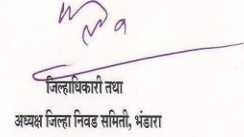 जिल्हाधिकारी तथा
अध्यक्ष जिल्हा निवड समिती, भंडारा